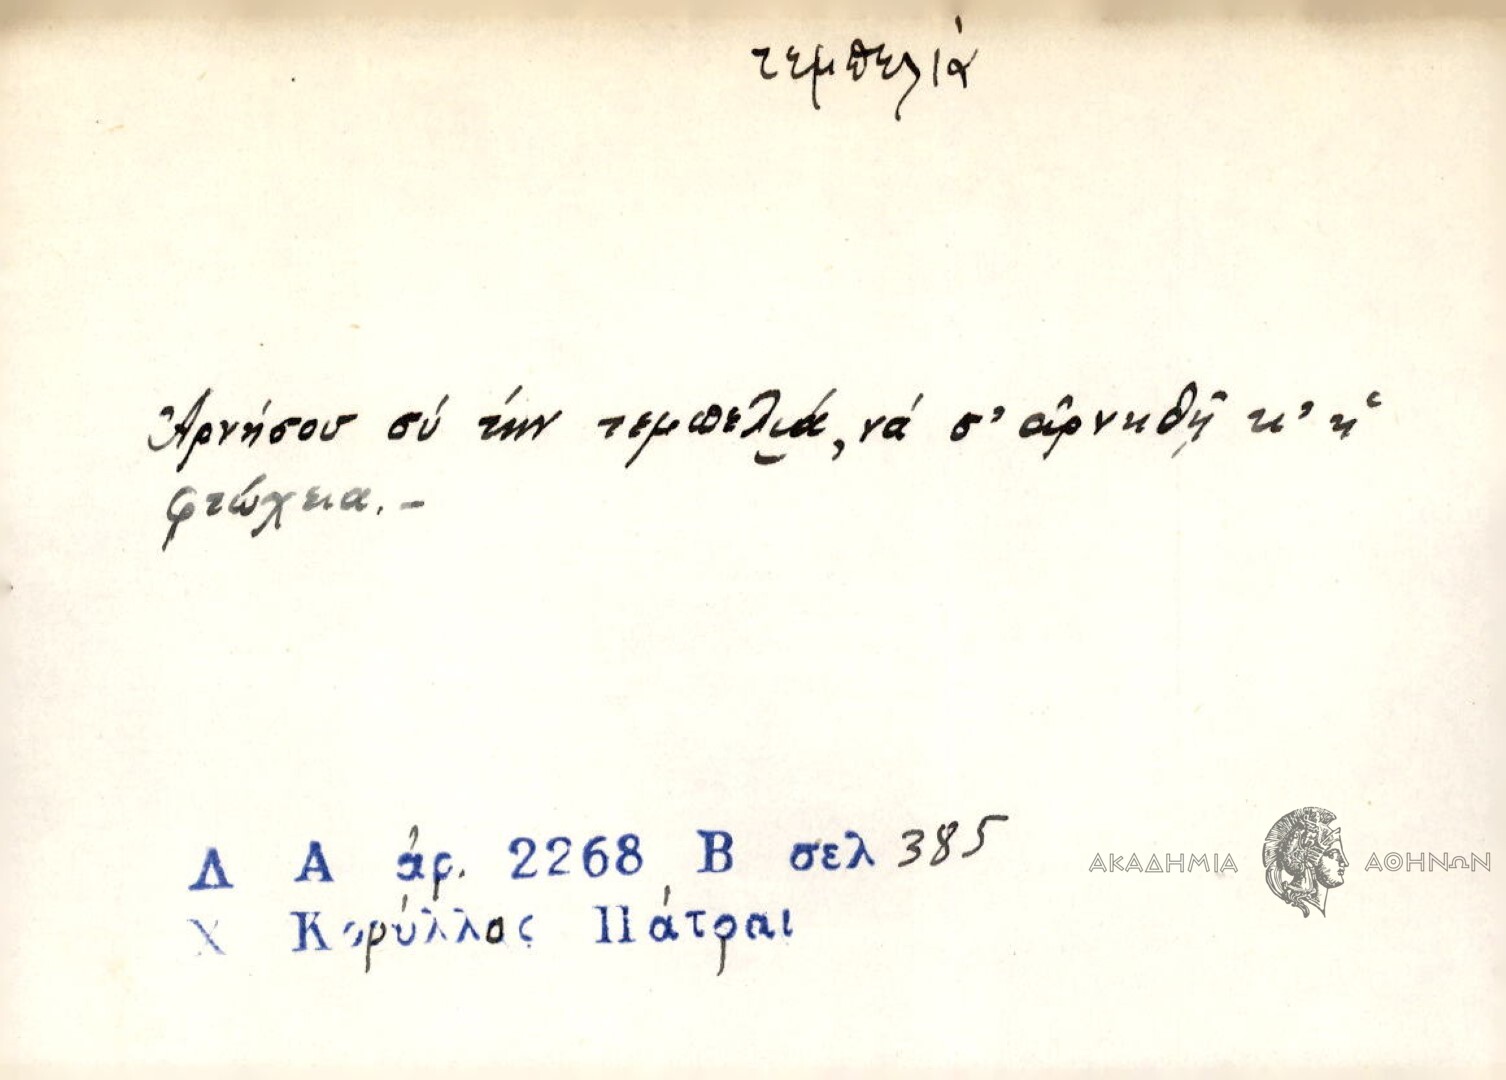 τεμπελιά
Ἀρνήσου σύ τήν τεμπελιά, νά σ' ἀρνηθῇ κ' ἡ
φτώχεια. -
Λ Α ἀρ. 2268 Β σελ 385
Χ Κορύλλος Πάτραι
ΑΚΑΔΗΜΙΑ ΑΘΗΝΩΝ